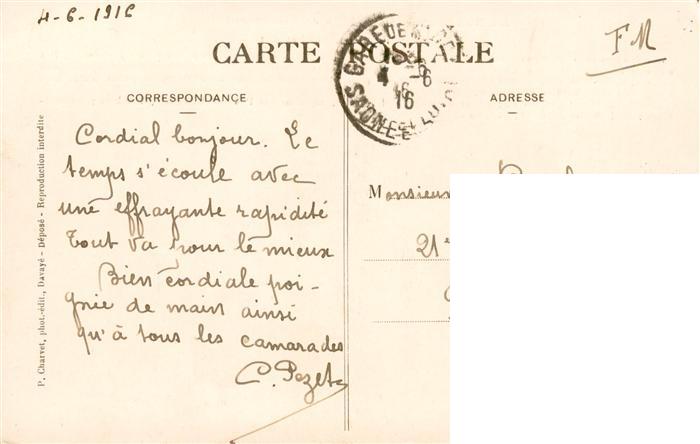 4-6-1916
FM
CARTE POSTALE
GARE DE
4 -6
16
SAÔNE-ET-LOIRE
CORRESPONDANCE
ADRESSE
Cordial bonjour. Le
temps s'écoule avec
une effrayante rapidité
Tout va pour le mieux
Bien cordiale poi-
gnée de main ainsi
qu'à tous les camarades
C. Pezet
Monsieur
21e
P. Charvet, phot.-édit., Davayé - Déposé - Reproduction interdite